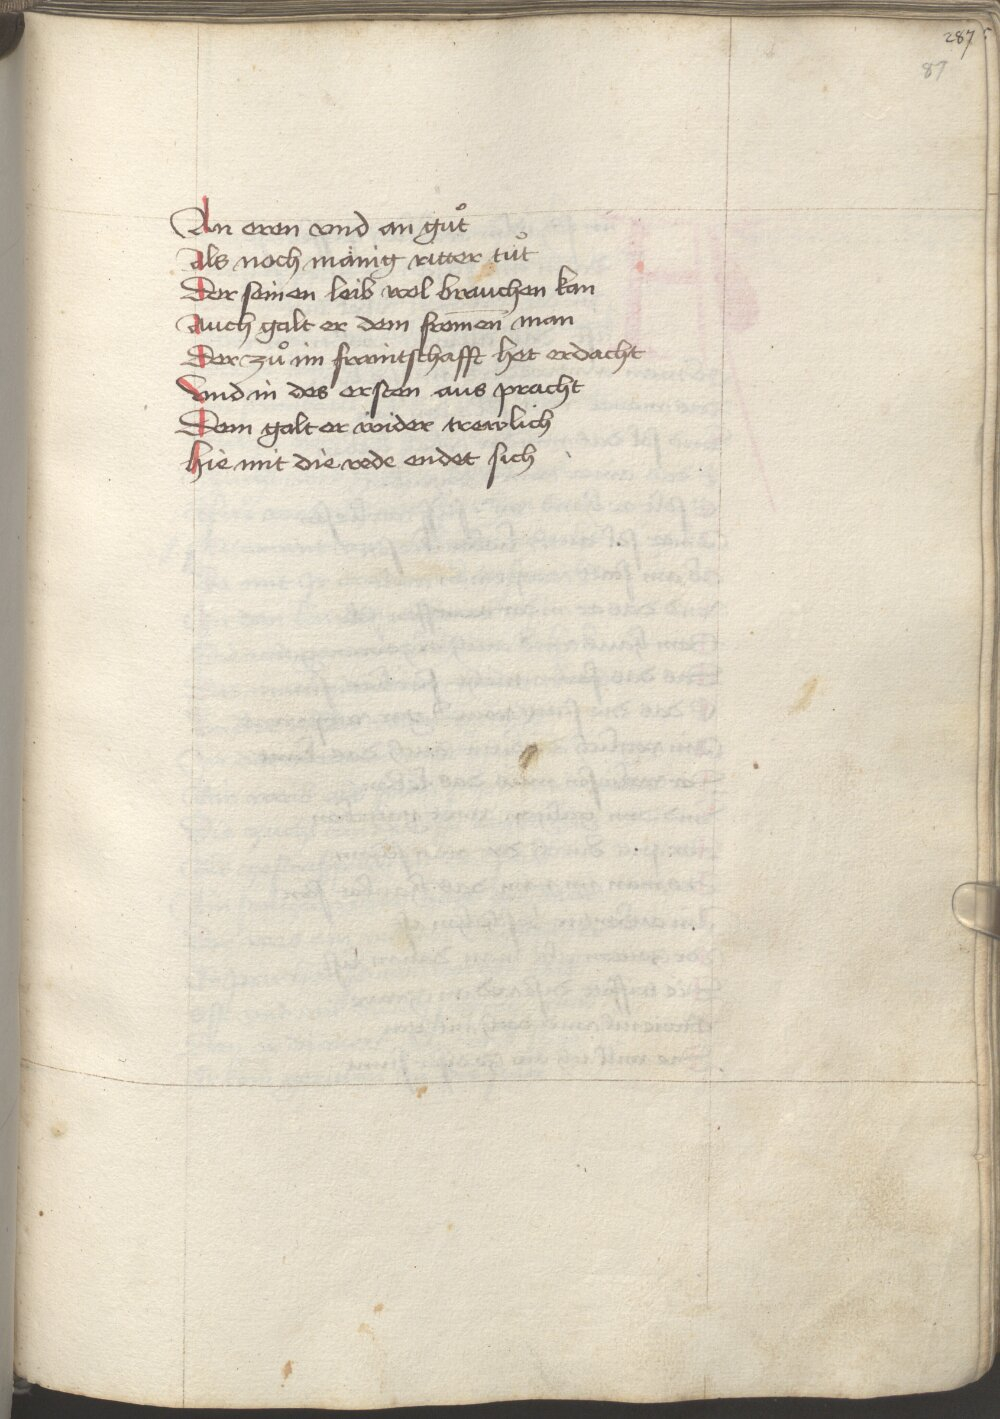 287
87
An eren vnd an guͦt
Als noch mänig ritter tuͦt
Der seinen leib wol brauchen kan
Auch galt er dem fromen̄ man
Der zuͦ im fraintschafft het erdacht
Vnd in des ersten aus pracht
Dem galt er wider trewlich
Hie mit die rede endet sich